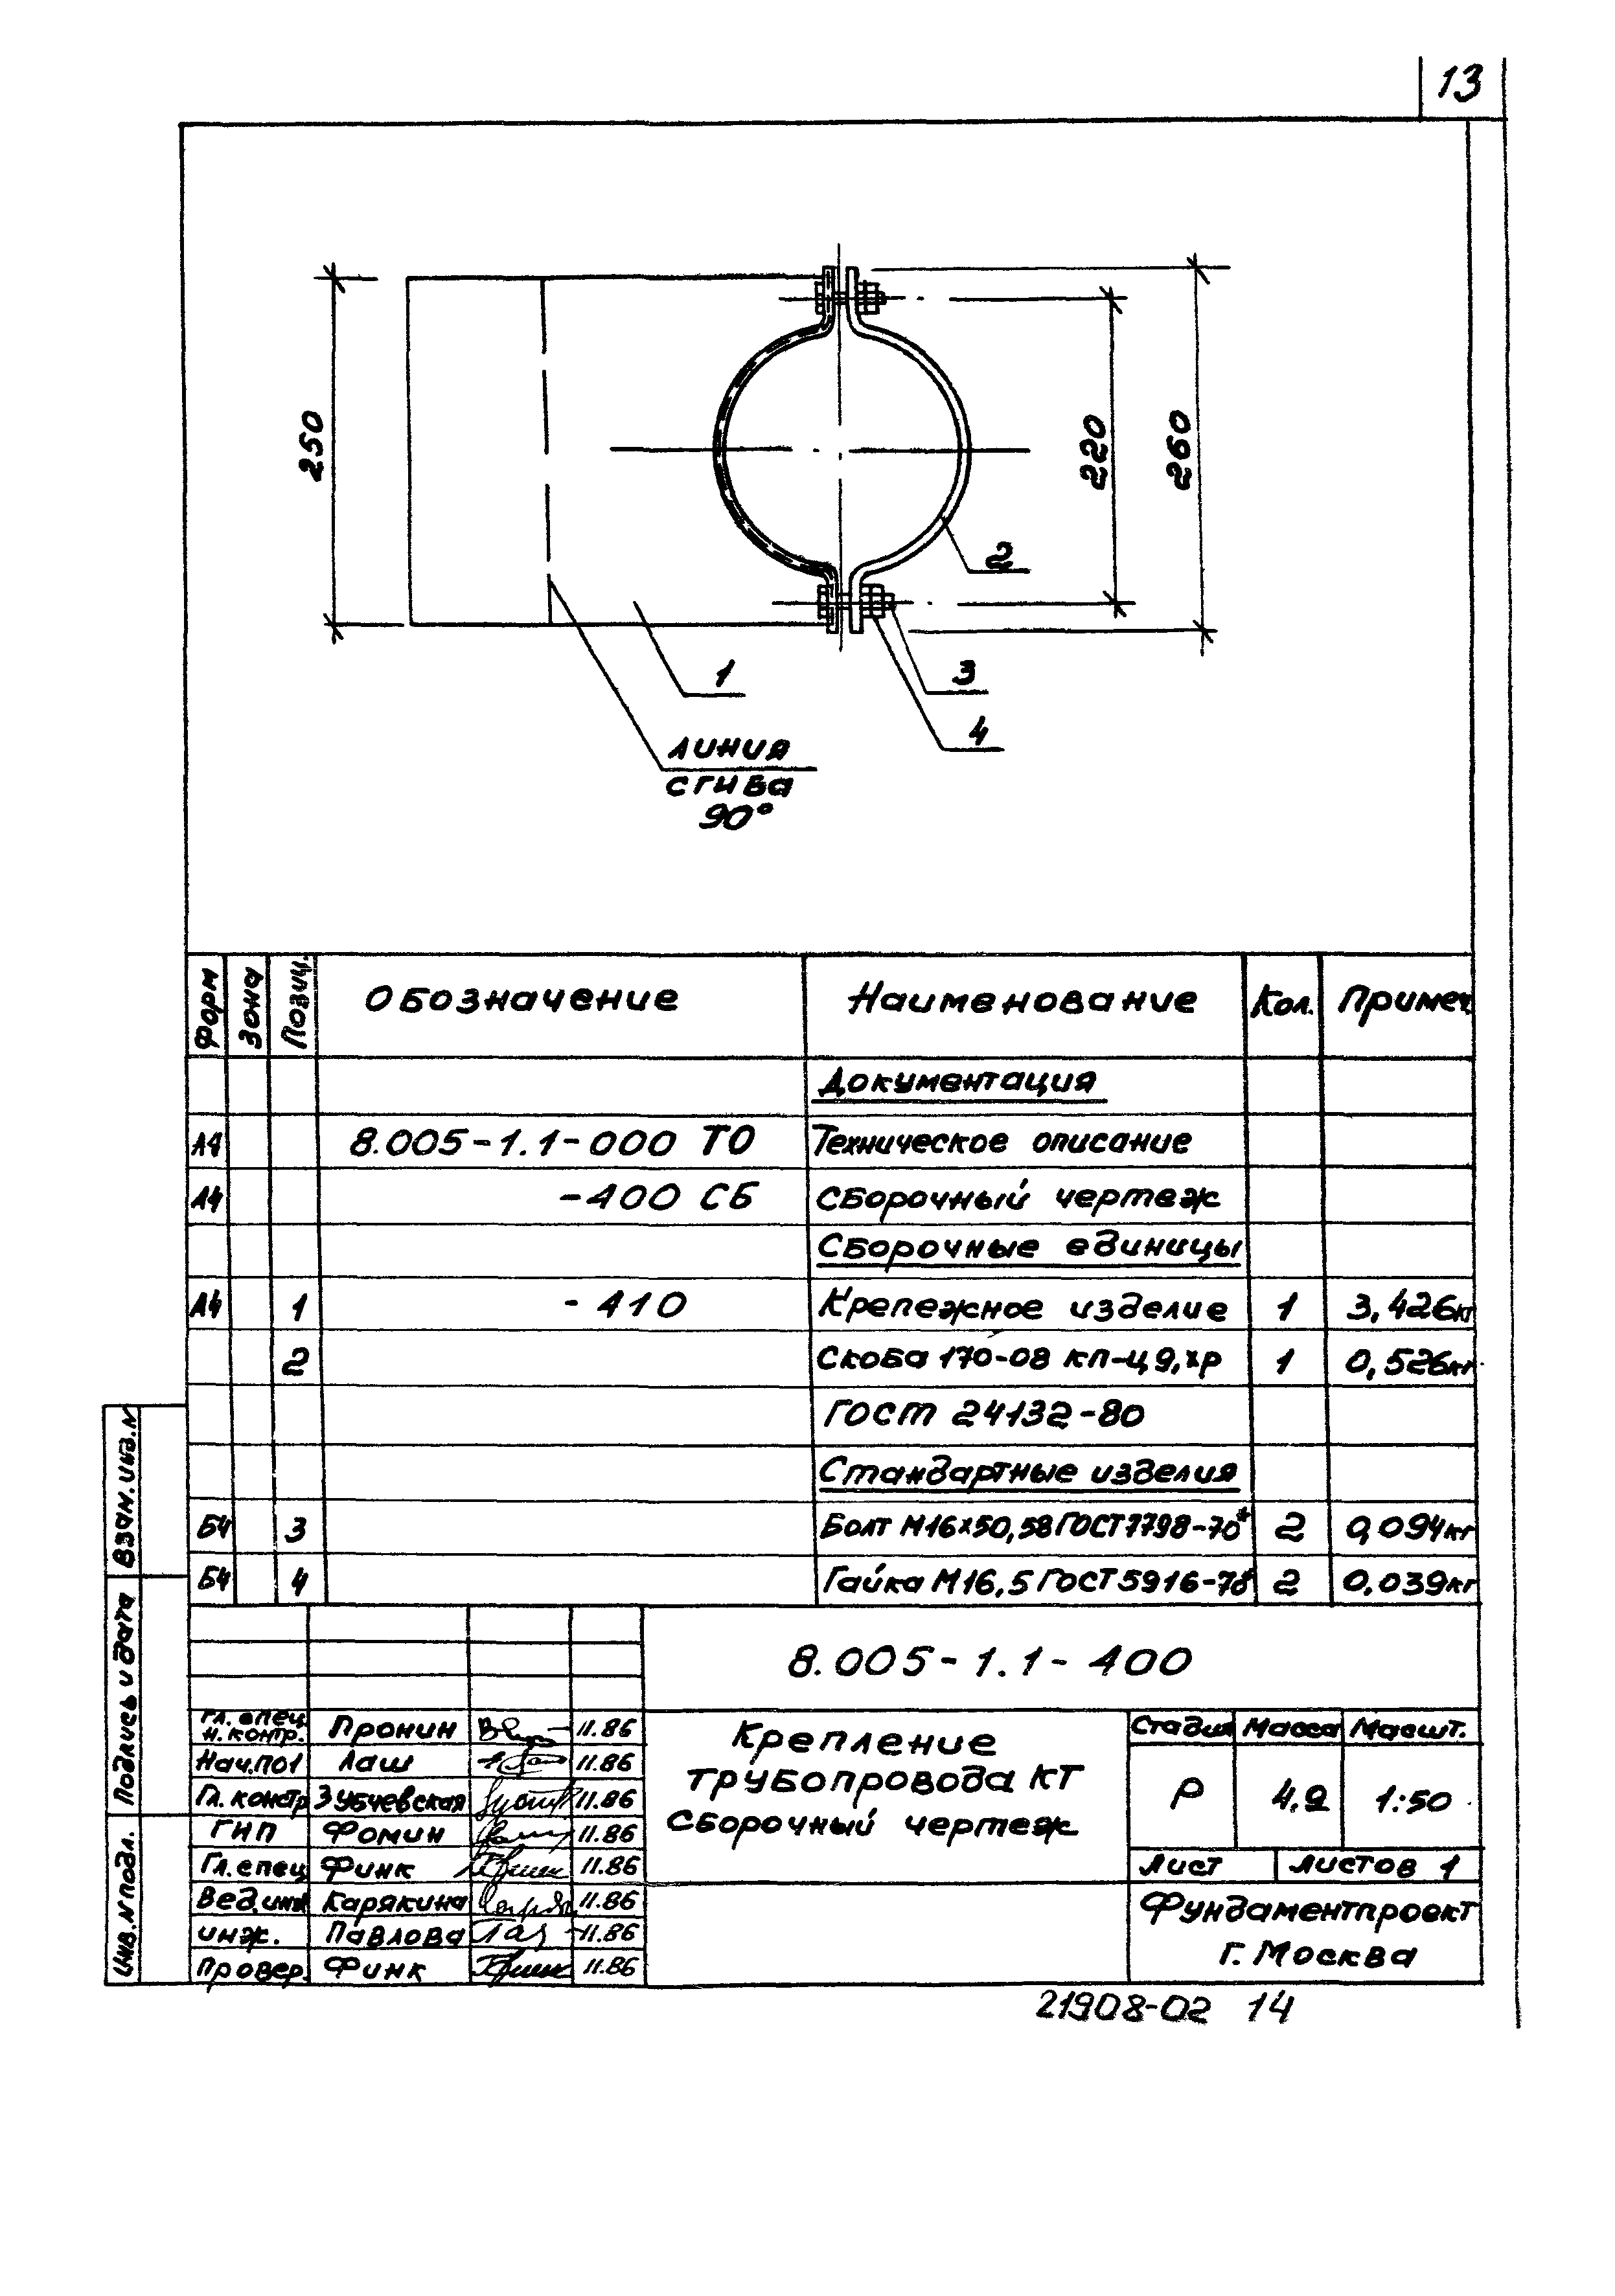 13
250
220
260
2
1
3
4
линия
сгиба
90°
Форм Зона Позиц. Обозначение Наименование Кол. Примеч.
Документация
А4 8.005-1.1-000 ТО Техническое описание
А4 -400 СБ Сборочный чертеж
Сборочные единицы
А4 1 -410 Крепежное изделие 1 3,426кг
2 Скоба 170-08 кп-ц9,хр 1 0,526кг
ГОСТ 24132-80
Стандартные изделия
Б4 3 Болт М16х50,58 ГОСТ 7798-70* 2 0,094кг
Б4 4 Гайка М16,5 ГОСТ 5916-70* 2 0,039кг
Взам.инв.N
Подпись и дата
Инв.N подл.
8.005-1.1-400
Гл. спец.
н. контр. Пронин 11.86
Нач.ПО1 Лаш 11.86
Гл. констр Зубчевская 11.86
ГИП Фомин 11.86
Гл. спец Финк 11.86
Вед.инж Карякина 11.86
инж. Павлова 11.86
Провер. Финк 11.86
Крепление
трубопровода КТ
Сборочный чертеж
Стадия Масса Масшт.
Р 4.2 1:50
Лист Листов 1
Фундаментпроект
г. Москва
21908-02 14